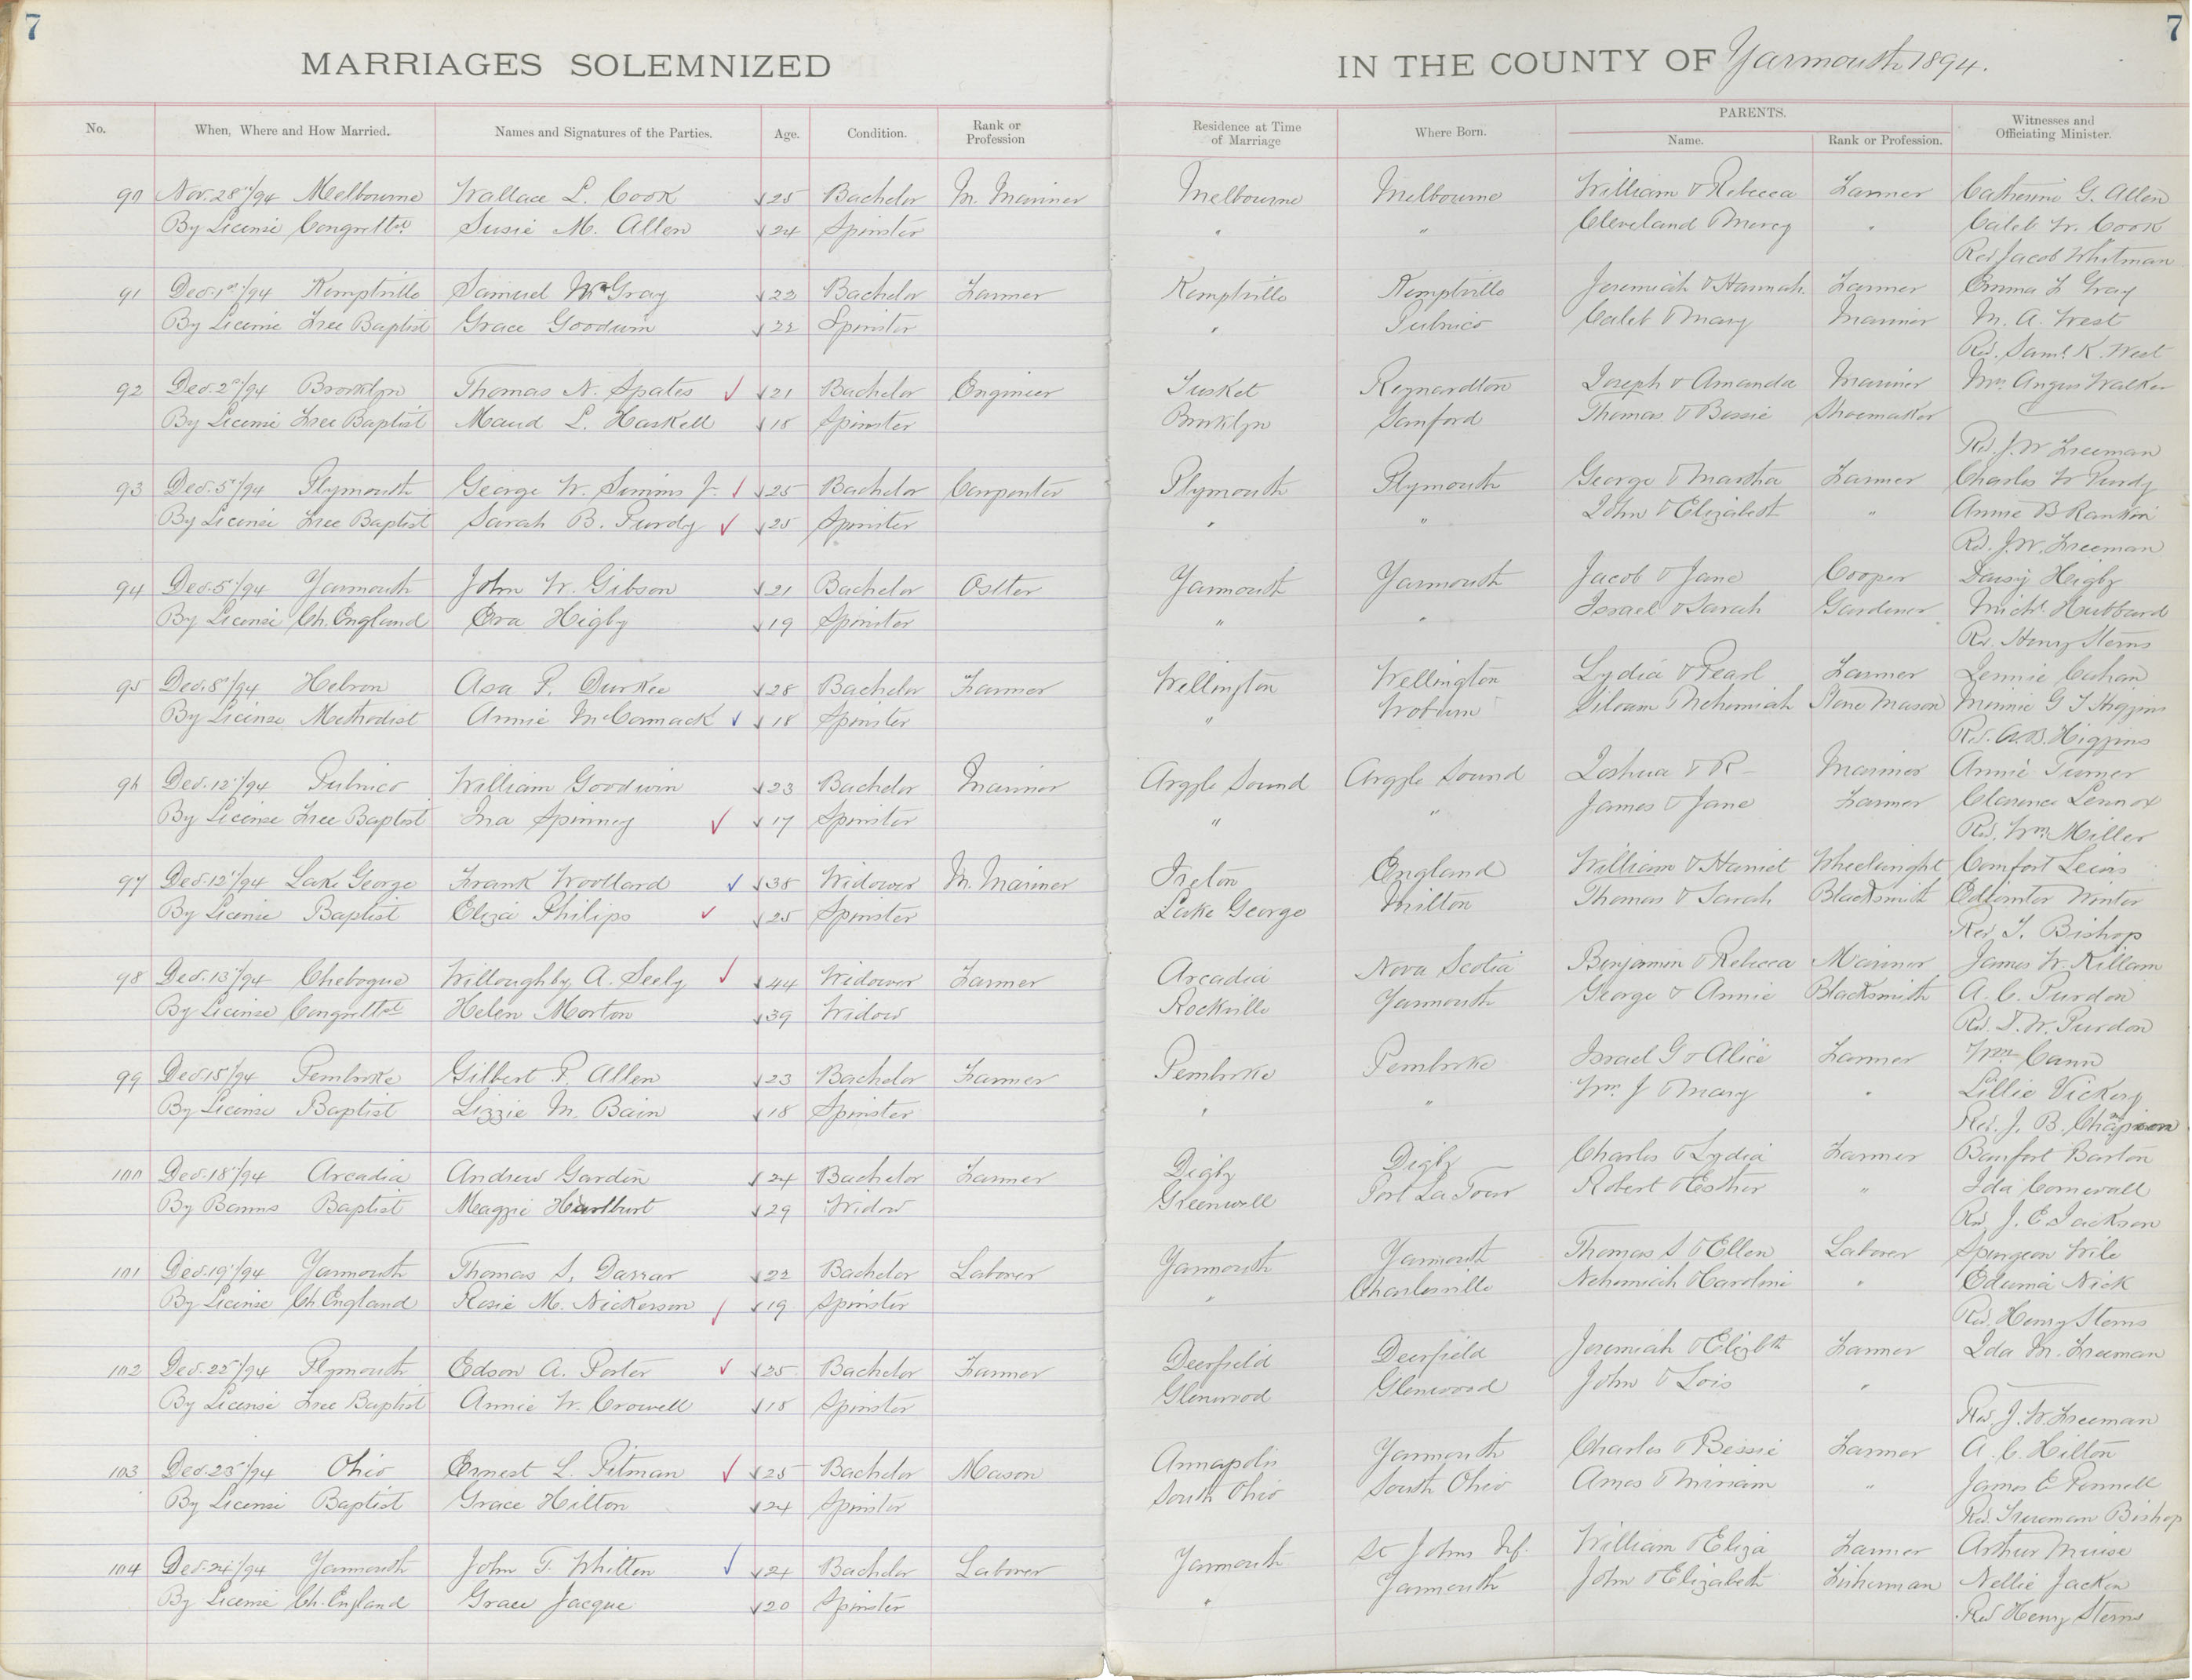 7
7
MARRIAGES SOLEMNIZED IN THE COUNTY OF Yarmouth 1894.
No. When, Where and How Married. Names and Signatures of the Parties. Age. Condition. Rank or Profession Residence at Time of Marriage Where Born. PARENTS. Name. Rank or Profession. Witnesses and Officiating Minister.
90 Nov. 28"/94 Melbourne Wallace L. Cook 25 Bachelor M. Mariner Melbourne Melbourne William & Rebecca Farmer Catherine G. Allen
By License Congrettl Susie M. Allen 24 Spinster " " Cleveland & Mercy " Caleb W. Cook
Rev Jacob Whitman
91 Dec. 1st/94 Kemptville Samuel W. Gray 22 Bachelor Farmer Kemptville Kemptville Jeremiah & Hannah. Farmer Emma F Gray
By License Free Baptist Grace Goodwin 22 Spinster " Pubnico Caleb & Mary Mariner M. A. West
Rev. Saml. K. West
92 Dec. 2"/94 Brooklyn Thomas N. Spates 21 Bachelor Engineer Tusket Reynardton Joseph & Amanda Mariner Mrs Angus Walker
By License Free Baptist Maud L. Haskell 18 Spinster Brooklyn Sanford Thomas & Bessie Shoemaker
Rev. J. W Freeman
93 Dec. 5"/94 Plymouth George W. Simms Jr. 25 Bachelor Carpenter Plymouth Plymouth George & Martha Farmer Charles W Purdy
By License Free Baptist Sarah B. Purdy 25 Spinster " " John & Elizabeth " Annie B Rankin
Rev. J. W. Freeman
94 Dec. 5"/94 Yarmouth John W. Gibson 21 Bachelor Ostler Yarmouth Yarmouth Jacob & Jane Cooper Daisy Higby
By License Ch. England Eva Higby 19 Spinster " " Israel & Sarah Gardener Michl. Hubbard
Rev. Henry Sterns
95 Dec. 8"/94 Hebron Asa P. Durkee 28 Bachelor Farmer Wellington Wellington Lydia & Pearl Farmer Lennie Cahan
By License Methodist Annie McCormack 18 Spinster " Woburn Siloam & Nehemiah Stone Mason Minnie G T Higgins
Rev. A. B. Higgins
96 Dec. 12"/94 Pubnico William Goodwin 23 Bachelor Mariner Argyle Sound Argyle Sound Joshua & R- Mariner Annie Turner
By License Free Baptist Ina Spinney 17 Spinster " " James & Jane Farmer Clarence Lennox
Rev. Wm. Miller
97 Dec. 12"/94 Lake George Frank Woollard 38 Widower M. Mariner Ireton England William & Harriet Wheelwright Comfort Lewis
By License Baptist Eliza Philips 25 Spinster Lake George Milton Thomas & Sarah Blacksmith Winter
Rev T. Bishop
98 Dec. 13"/94 Chebogue Willoughby A. Seely 44 Widower Farmer Arcadia Nova Scotia Benjamin & Rebecca Mariner James W. Killam
By License Congrettl Helen Morton 39 Widow Rockville Yarmouth George & Annie Blacksmith A. C. Purdon
Rev. D. W. Purdon
99 Dec 15"/94 Pembroke Gilbert P. Allen 23 Bachelor Farmer Pembroke Pembroke Israel G & Alice Farmer Wm Cann
By License Baptist Lizzie M. Bain 18 Spinster " " Wm. J & Mary " Lillie Vickery
Rev. J. B. Champion
100 Dec. 18"/94 Arcadia Andrew Gardin 24 Bachelor Farmer Digby Digby Charles & Lydia Farmer Banfort Barton
By Banns Baptist Maggie Hurlburt 29 Widow Greenwell Port La Tour Robert & Esther " Ida Cornwall
Rev J. E Jackson
101 Dec. 19"/94 Yarmouth Thomas S. Darrar 22 Bachelor Laborer Yarmouth Yarmouth Thomas S & Ellen Laborer Spurgeon Wile
By License Ch England Rosie M. Nickerson 19 Spinster " Charlesville Nehemiah & Caroline " Nick
Rev. Henry Sterns
102 Dec. 22"/94 Plymouth Edson A. Porter 25 Bachelor Farmer Deerfield Deerfield Jeremiah & Elizbth Farmer Ida M. Freeman
By License Free Baptist Annie W. Crowell 18 Spinster Glenwood Glenwood John & Lois "
Rev. J. W. Freeman
103 Dec. 23"/94 Ohio Ernest L. Pitman 25 Bachelor Mason Annapolis Yarmouth Charles & Bessie Farmer A. C. Hilton
By License Baptist Grace Hilton 24 Spinster South Ohio South Ohio Amos & Miriam " James E Pennell
Rev. Trueman Bishop
104 Dec. 24"/94 Yarmouth John T. Whitten 24 Bachelor Laborer Yarmouth St Johns Nf. William & Eliza Farmer Arthur Muise
By License Ch. England Grace Jacque 20 Spinster " Yarmouth John & Elizabeth Fisherman Nellie Jacken
Rev Henry Sterns